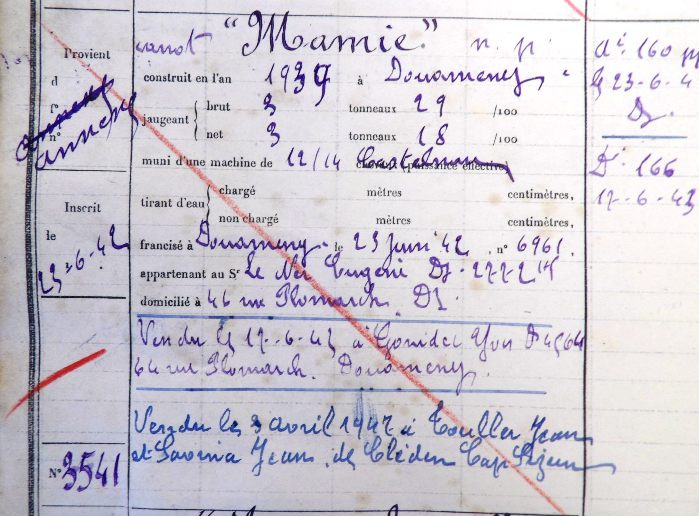 Provient
d
n°
annexe
canot "Mamie" n. p.
construit en l'an 1939 à Douarnenez
jaugeant brut 3 tonneaux 29 /100
net 3 tonneaux 18 /100
muni d'une machine de 12/14 (puissance effective)
tirant d'eau chargé mètres centimètres,
non chargé mètres centimètres,
francisé à Douarnenez le 23 juin 42, n° 6961.
appartenant au Sr Le Eugène Dz. 2772
domicilié à 46 rue Plomarch Dz.
Vendu le 17-6-43 à Gonidec Yvon
64 rue Plomarch. Douarnenez
Vendu le 3 avril 1947 à Jean
et Jean, de Cléden Cap Sizun
Inscrit
le
23-6-42
N° 3541
160
23-6-4
Dz.
166
17-6-43